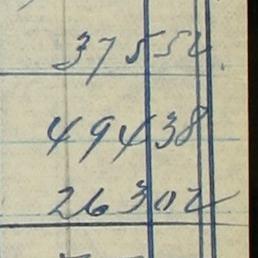 37552
49438
26302